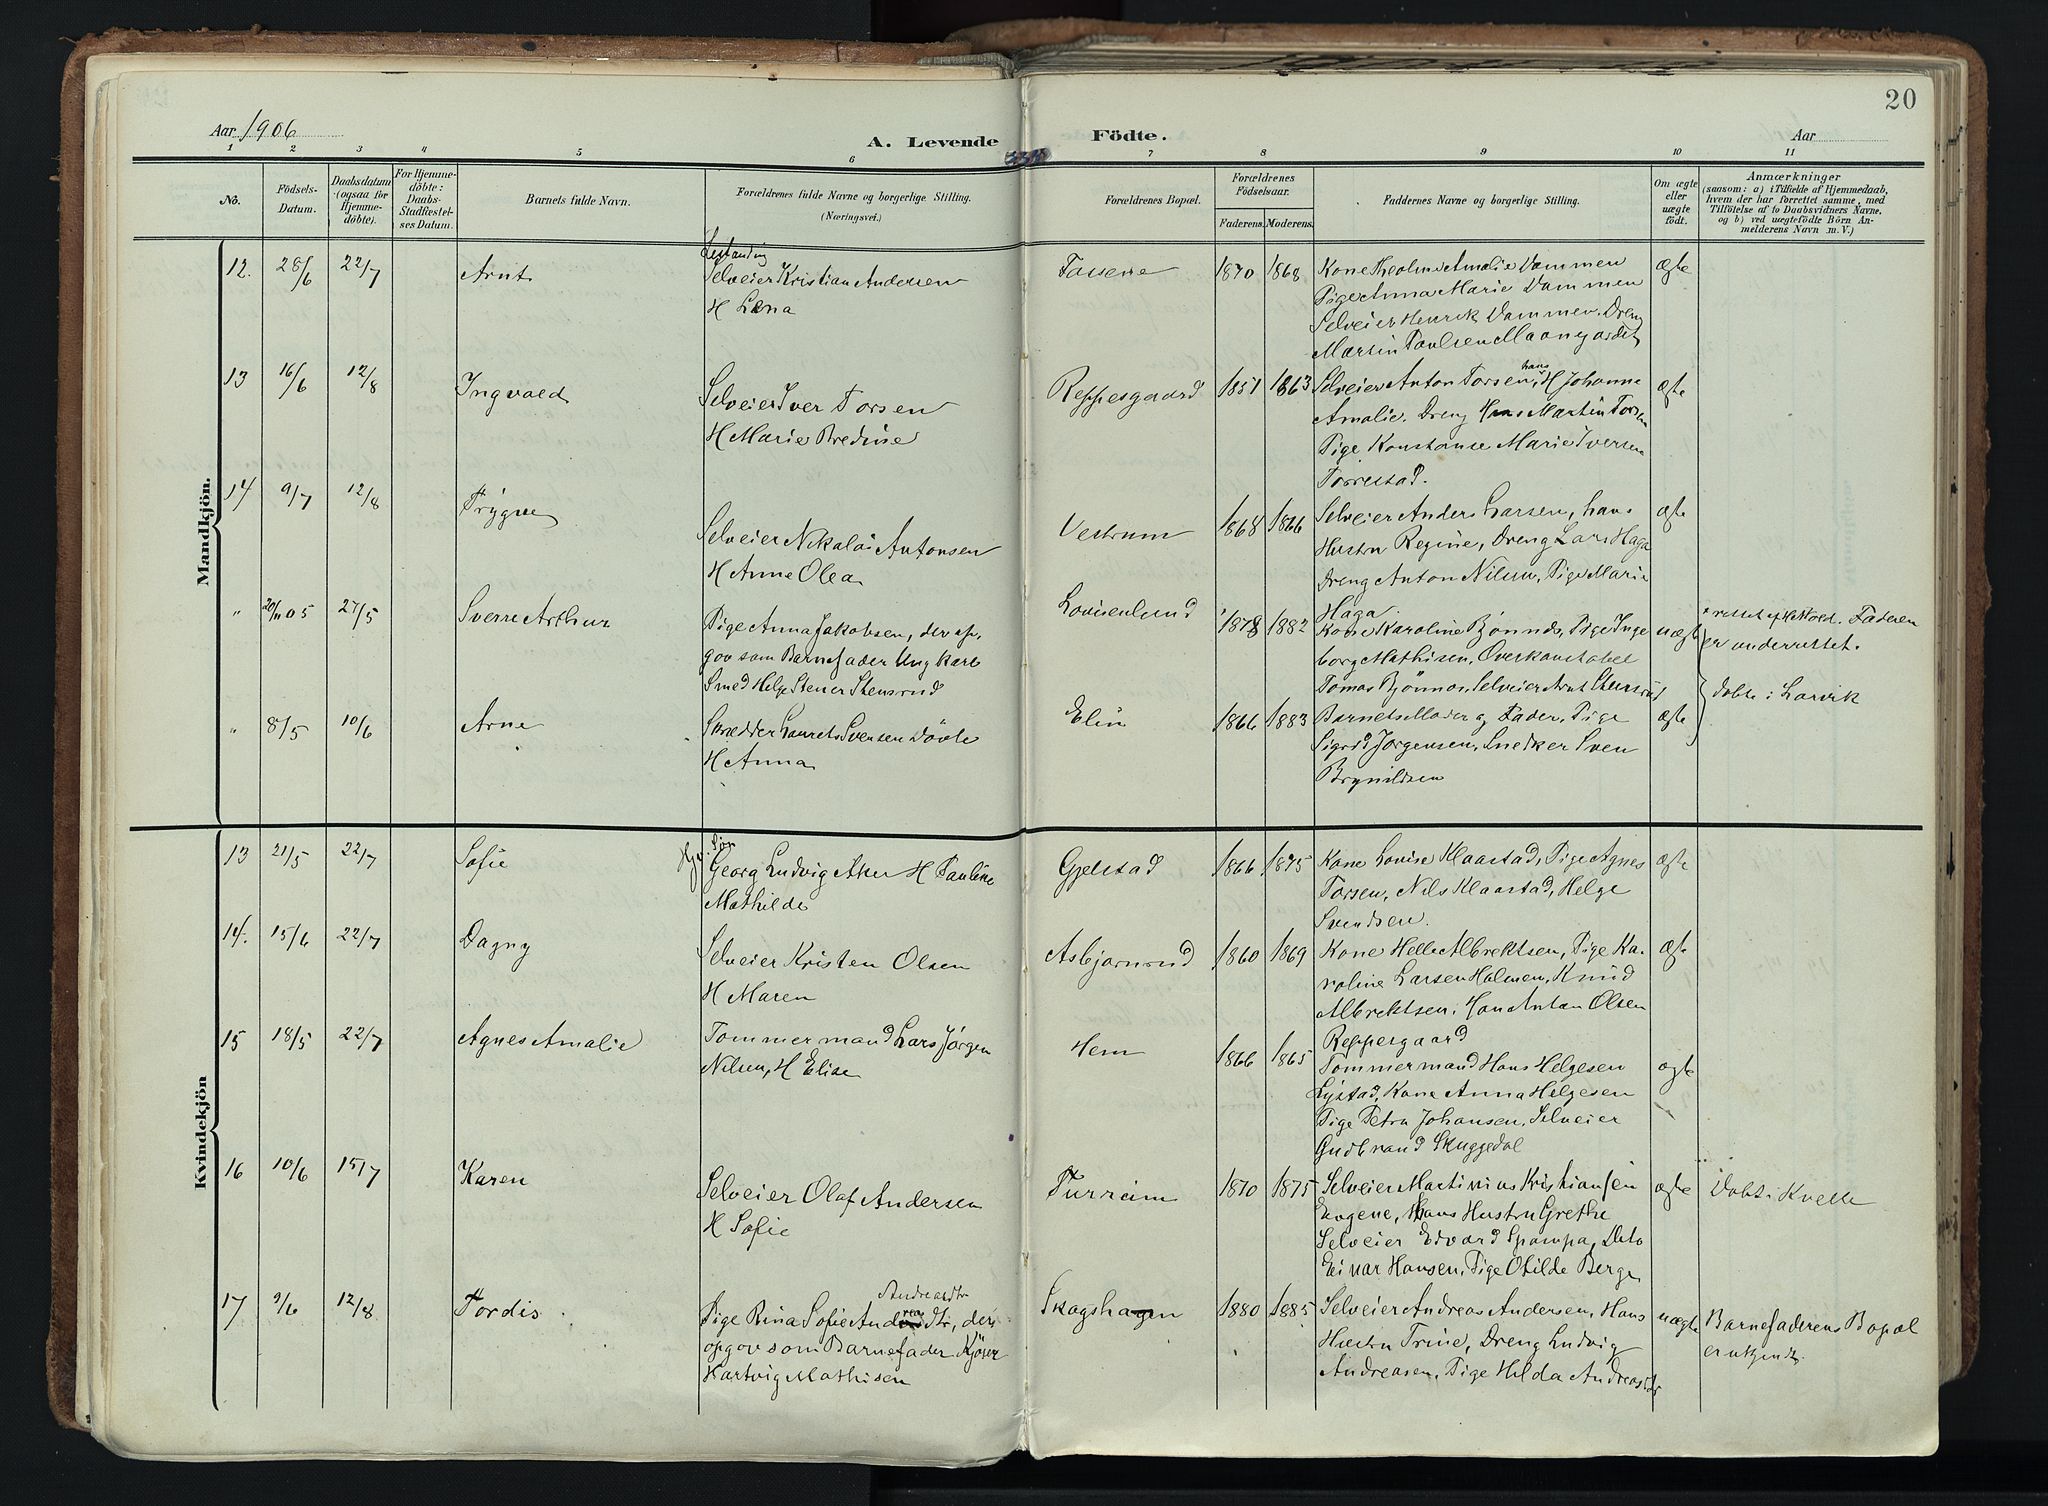 20
Aar 1906
A. Levende Födte.
Aar
1 2 3 4 5 6 7 8 9 10 11
No.
Födsels-
Datum.
Daabsdatum
(ogsaa for
Hjemme-
döbte).
For Hjemme-
döbte:
Daabs-
Stadfæstel-
ses Datum.
Barnets fulde Navn.
Forældrenes fulde Navne og borgerlige Stilling.
(Næringsvei.)
Forældrenes Bopæl.
Forældrenes
Födselsaar.
Faderens. Moderens.
Faddernes Navne og borgerlige Stilling.
Om ægte
eller
uægte
födt.
Anmærkninger
(saasom: a) i Tilfælde af Hjemmedaab,
hvem der har forrettet samme, med
Tilföielse af to Daabsvidners Navne,
og b) ved uægtefödte Börn An-
melderens Navn m. V.)
Mandkjön.
12. 28/6 22/7 Arnt
Selveier Kristian Andersen
H Lena
1870 1868
Kone Theoline Amalie Dammen
Pige Anna Marie Dammen
Selveier Henrik Dammen. Dreng
Martin Paulsen Maanejordet
Ægte
13 16/6 12/8 Ingvald
Selveier Iver Torsen
H Marie Bredine
Reppesgaard
1851 1863
Selveier Anton Torsen, hans H Johanne
Amalie. Dreng Hans Martin Torsen
Pige Konstanse Marie Iversen
Torrestad.
ægte
14 9/7 12/8 Trygve
Selveier Nikolai Antonsen
H Anne Olea
Vestrum
1868 1866
Selveier Anders Larsen, hans
Hustru Regine, Dreng Lars Haga
Dreng Anton Nilsen, Pige Marie
Haga
ægte
" 20/11 05 27/5 Sverre Arthur
Pige Anna Jakobsen, der op-
gov som Barnefader Ungkarl
Smed Helge Stener Stensrud
Lovisenlund
1878 1882
Kone Karoline Bjønnås, Pige Inge
borg Mathisen, Overkonstabel
Tomas Bjönnes, Selveier Arnt Stensrud
uægte
Faderen
er underrettet.
" 8/5 10/6 Arne
Skrædder Laurits Svensen Dövle
H Anna
Elin
1866 1883
Barnets Moder og Fader, Pige
Sigrid Jørgensen, Snedker Sven
Brynildsen
ægte
döbte i Larvik
Kvindekjön
13 21/5 22/7 Sofie
Georg Ludvig Aker H Pauline
Mathilde
Gjelstad
1866 1875
Kone Lovise Klaastad, Pige Agnes
Torsen, Nils Klaastad, Helge
Svendsen.
ægte
14. 15/6 22/7 Dagny
Selveier Kristen Olsen
H Maren
Asbjørnrud
1860 1869
Kone Helle Albrektsen, Pige Ka-
roline Larsen Holmen, Knud
Albrektsen, Hans Anton Olsen
Reppesgaard
ægte
15 18/5 22/7 Agnes Amalie
Tommermand Lars Jörgen
Nilsen, H Elise
Hem
1866 1865
Tommermand Hans Helgesen
Lystad, Kone Anna Helgesen
Pige Petra Johansen, Selveier
Gudbrand Skuggedal
ægte
16 10/6 15/7 Karen
Selveier Olaf Andersen
H Sofie
Furreim
1870 1875
Selveier Martinius Kristiansen
Eugene, Hans Hustru Grethe
Selveier Edvard Spampa, Dito
Einar Hansen, Pige Otilde Berge
ægte
Döbt i Kvelle
17 9/6 12/8 Tordis
Andreasdtr
Pige Rina Sofie Andreasdtr, der
opgov som Barnefader Kjörer
Hartvig Mathisen
Skogshagen
1880 1885
Selveier Andreas Andersen, Hans
Hustru Trine, Dreng Ludvig
Andreasen, Pige Helda Andreasdtr
uægte
Barnefaderens Bopæl
er ukjendt.